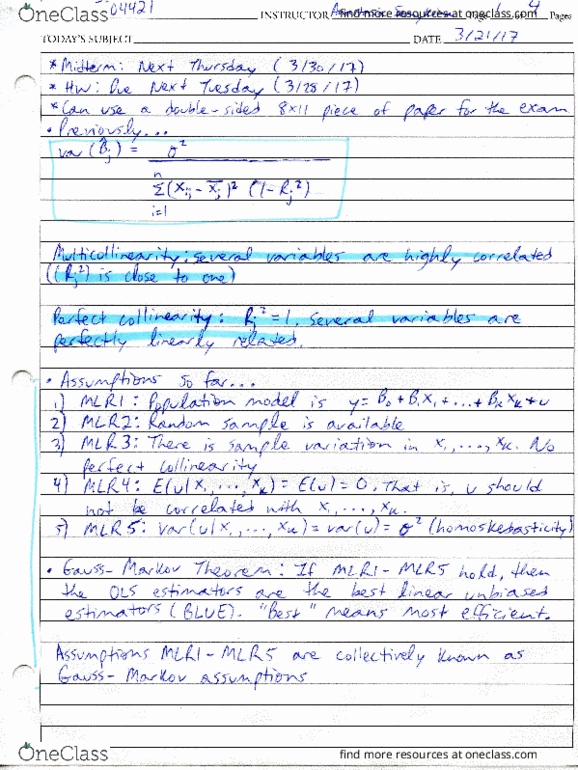 OneClass
04421
INSTRUCTOR find more resources at oneclass.com 4 Pages
TODAY'S SUBJECT DATE 3/21/17
* Midterm: Next Thursday (3/30/17)
* HW: Due Next Tuesday (3/28/17)
* Can use a double-sided 8x11 piece of paper for the exam
• Previously...
var (B̂j) = σ²
n
Σ(xij - x̄j)² (1-Rj²)
i=1
Multicollinearity: several variables are highly correlated
((Rj²) is close to one)
Perfect collinearity: Rj²=1, several variables are
perfectly linearly related.
• Assumptions so far...
1) MLR1: Population model is y=B₀+B₁x₁+...+Bₖxₖ+u
2) MLR2: Random sample is available
3) MLR3: There is sample variation in x₁,...,xₖ. No
perfect collinearity
4) MLR4: E(u|x₁,...,xₖ)=E(u)=0. That is, u should
not be correlated with x₁,...,xₖ.
5) MLR5: var(u|x₁,...,xₖ)=var(u)=σ² (homoskedasticity)
• Gauss-Markov Theorem: If MLR1-MLR5 hold, then
the OLS estimators are the best linear unbiased
estimators (BLUE). "Best" means most efficient.
Assumptions MLR1-MLR5 are collectively known as
Gauss-Markov assumptions
OneClass
find more resources at oneclass.com